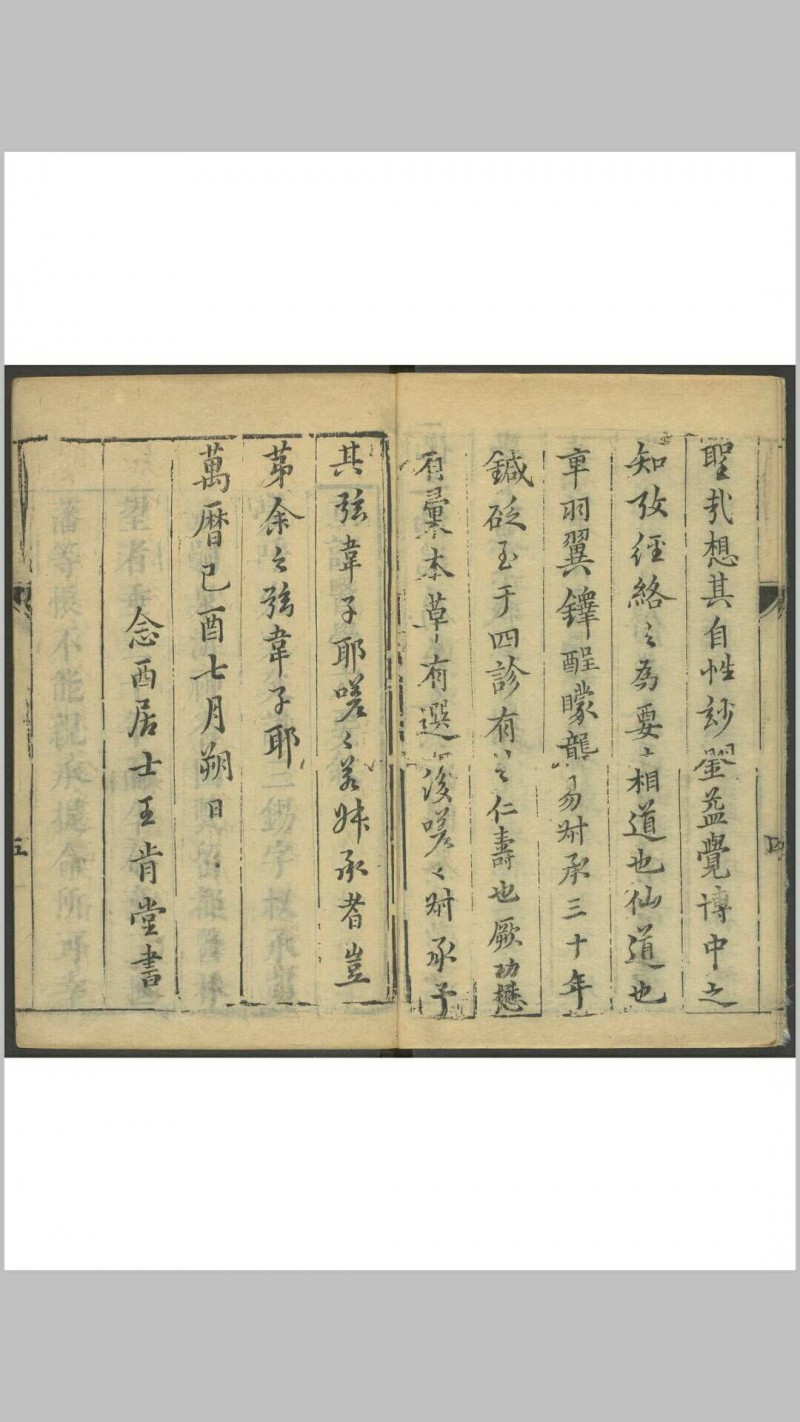 聖哉想其自性玅圀益覺博中之
知攷經絡之為要〻相道也仙道也
重羽翼鐸醒矇龍易尌承三十年
鍼砭至于四診有以之仁壽也厥功懋
有彙本草有選後嗟〻尌承予
其弦韋子耶嗟〻若妹承者豈
苐余之弦韋子耶
萬曆己酉七月朔日
念西居士王肯堂書
四
五